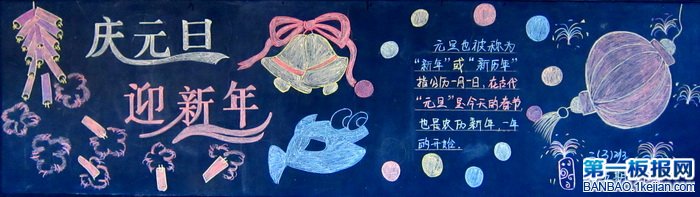 庆元旦
迎新年
元旦也被称为
“新年”或“新历年”
指公历一月一日，在古代
“元旦”是今天的春节
也是农历新年，一年
的开始.
第一板报网
BANBAO.1kejian.com